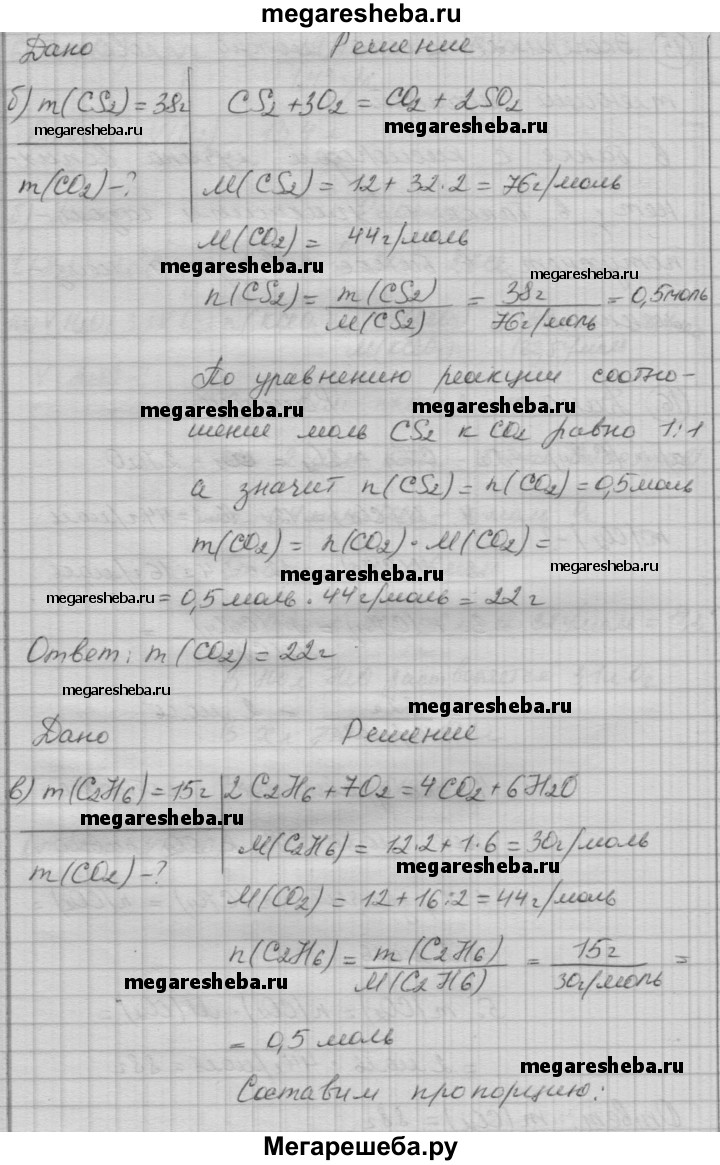 megaresheba.ru
Дано Решение
б) m(CS2) = 38г CS2 + 3O2 = CO2 + 2SO2
megaresheba.ru megaresheba.ru
m(CO2) - ? M(CS2) = 12 + 32·2 = 76г/моль
M(CO2) = 44г/моль
megaresheba.ru megaresheba.ru
n(CS2) = m(CS2)/M(CS2) = 38г/76г/моль = 0,5моль
По уравнению реакции соотно-
megaresheba.ru megaresheba.ru
шение моль CS2 к CO2 равно 1:1
а значит n(CS2) = n(CO2) = 0,5моль
m(CO2) = n(CO2) · M(CO2) =
megaresheba.ru megaresheba.ru
megaresheba.ru = 0,5 моль · 44г/моль = 22 г
Ответ: m(CO2) = 22г
megaresheba.ru megaresheba.ru
Дано Решение
в) m(C2H6) = 15г 2C2H6 + 7O2 = 4CO2 + 6H2O
megaresheba.ru
M(C2H6) = 12·2 + 1·6 = 30г/моль
megaresheba.ru
m(CO2) - ?
M(CO2) = 12 + 16:2 = 44г/моль
n(C2H6) = m(C2H6)/M(C2H6) = 15г/30г/моль =
megaresheba.ru
= 0,5 моль
megaresheba.ru
Составим пропорцию:
Мегарешеба.ру